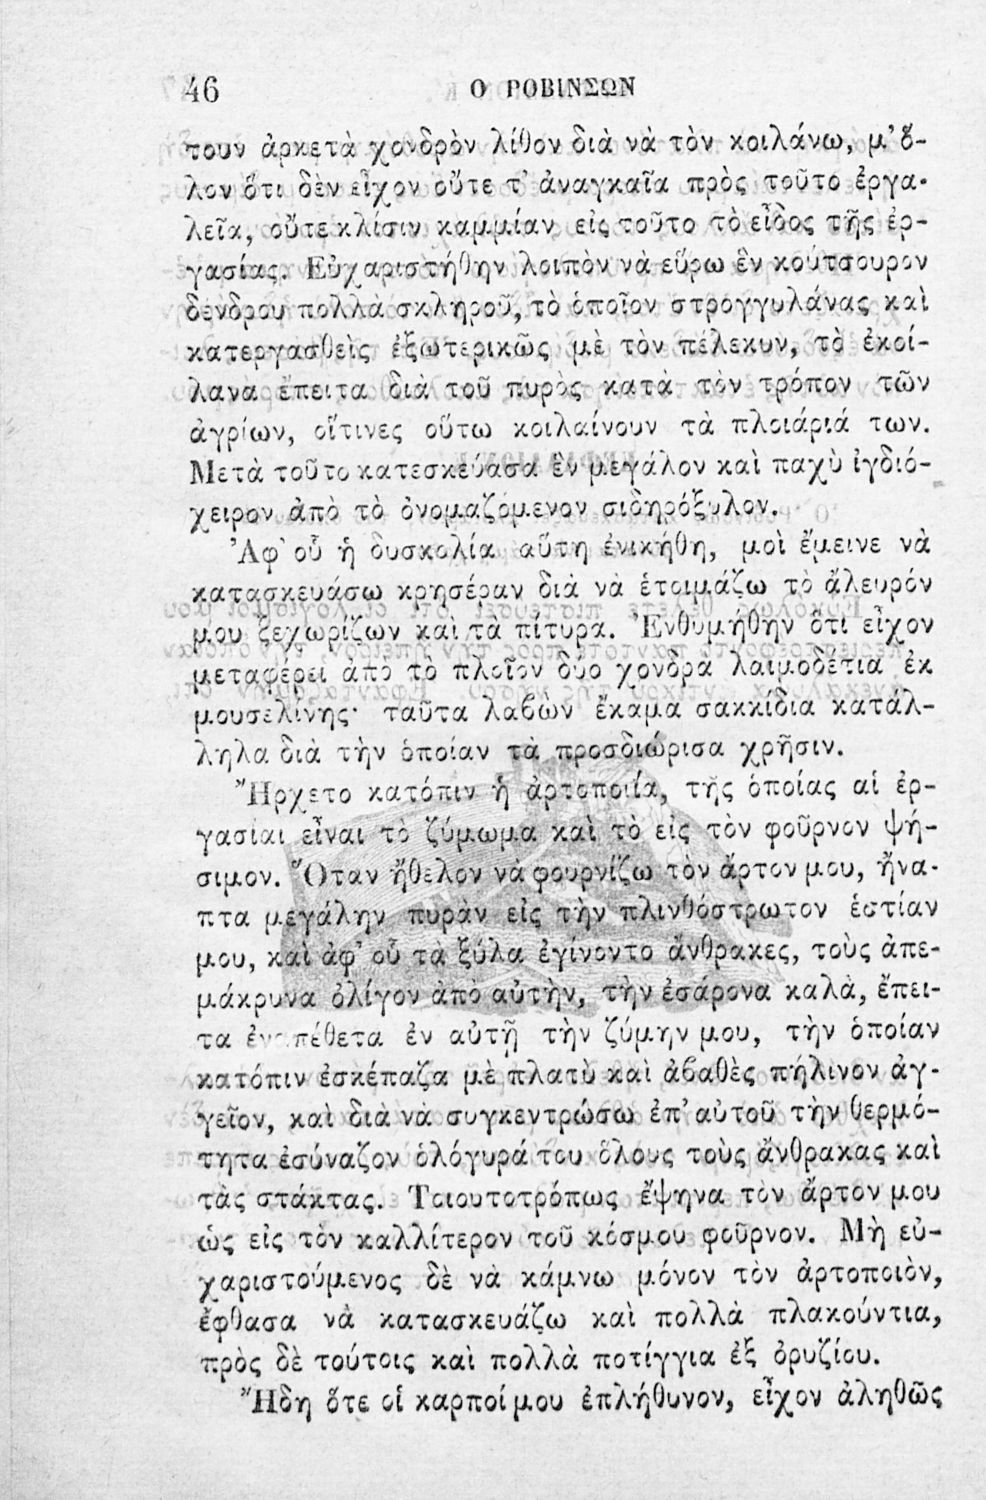 46 Ο ΡΟΒΙΝΣΩΝ
τουν ἀρκετὰ χονδρὸν λίθον διὰ νὰ τὸν κοιλάνω, μ’ ὅ-
λον ὅτι δὲν εἶχον οὔτε τ’ ἀναγκαῖα πρὸς τοῦτο ἐργα-
λεῖα, οὔτε κλίσιν καμμίαν εἰς τοῦτο τὸ εἶδος τῆς ἐρ-
γασίας. Εὐχαριστήθην λοιπὸν νὰ εὕρω ἓν κούτσουρον
δένδρου πολλὰ σκληροῦ, τὸ ὁποῖον στρογγυλάνας καὶ
κατεργασθεὶς ἐξωτερικῶς μὲ τὸν πέλεκυν, τὸ ἐκοί-
λανα ἔπειτα διὰ τοῦ πυρὸς κατὰ τὸν τρόπον τῶν
ἀγρίων, οἵτινες οὕτω κοιλαίνουν τὰ πλοιάριά των.
Μετὰ τοῦτο κατεσκεύασα ἓν μεγάλον καὶ παχὺ ἰγδιό-
χειρον ἀπὸ τὸ ὀνομαζόμενον σιδηρόξυλον.
Ἀφ’ οὗ ἡ δυσκολία αὕτη ἐνικήθη, μοὶ ἔμεινε νὰ
κατασκευάσω κρησέραν διὰ νὰ ἑτοιμάζω τὸ ἄλευρόν
μου ξεχωρίζων καὶ τὰ πίτυρα. Ἐνθυμήθην ὅτι εἶχον
μεταφέρει ἀπὸ τὸ πλοῖον δύο χονδρὰ λαιμοδέτια ἐκ
μουσελίνης· ταῦτα λαβὼν ἔκαμα σακκίδια κατάλ-
ληλα διὰ τὴν ὁποίαν τὰ προσδιώρισα χρῆσιν.
Ἤρχετο κατόπιν ἡ ἀρτοποιία, τῆς ὁποίας αἱ ἐρ-
γασίαι εἶναι τὸ ζύμωμα καὶ τὸ εἰς τὸν φοῦρνον ψή-
σιμον. Ὅταν ἤθελον νὰ φουρνίζω τὸν ἄρτον μου, ἤνα-
πτα μεγάλην πυρὰν εἰς τὴν πλινθόστρωτον ἑστίαν
μου, καὶ ἀφ’ οὗ τὰ ξύλα ἐγίνοντο ἄνθρακες, τοὺς ἀπε-
μάκρυνα ὀλίγον ἀπὸ αὐτὴν, τὴν ἐσάρονα καλὰ, ἔπει-
τα ἐναπέθετα ἐν αὐτῇ τὴν ζύμην μου, τὴν ὁποίαν
κατόπιν ἐσκέπαζα μὲ πλατὺ καὶ ἀβαθὲς πήλινον ἀγ-
γεῖον, καὶ διὰ νὰ συγκεντρώσω ἐπ’ αὐτοῦ τὴν θερμό-
τητα ἐσύναζον ὁλόγυρά του ὅλους τοὺς ἄνθρακας καὶ
τὰς στάκτας. Τοιουτοτρόπως ἔψηνα τὸν ἄρτον μου
ὡς εἰς τὸν καλλίτερον τοῦ κόσμου φοῦρνον. Μὴ εὐ-
χαριστούμενος δὲ νὰ κάμνω μόνον τὸν ἀρτοποιὸν,
ἔφθασα νὰ κατασκευάζω καὶ πολλὰ πλακούντια,
πρὸς δὲ τούτοις καὶ πολλὰ ποτίγγια ἐξ ὀρυζίου.
Ἤδη ὅτε οἱ καρποί μου ἐπλήθυνον, εἶχον ἀληθῶς